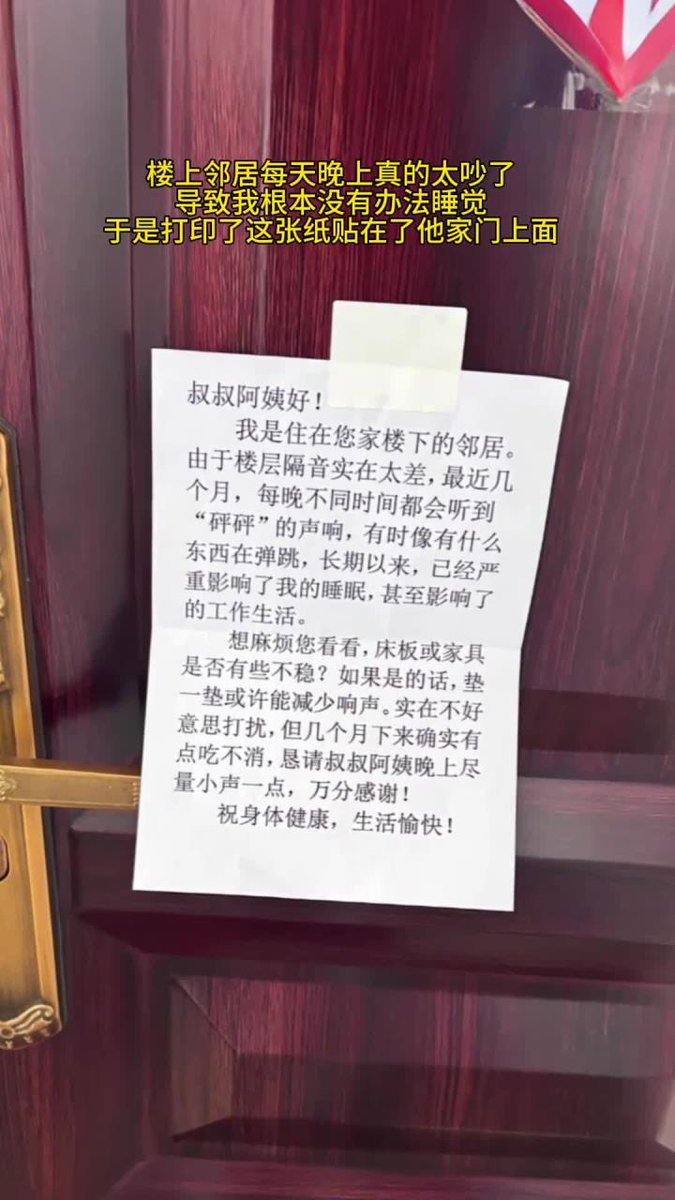 楼上邻居每天晚上真的太吵了
导致我根本没有办法睡觉
于是打印了这张纸贴在了他家门上面
叔叔阿姨好！
我是住在您家楼下的邻居。
由于楼层隔音实在太差，最近几
个月，每晚不同时间都会听到
“砰砰”的声响，有时像有什么
东西在弹跳，长期以来，已经严
重影响了我的睡眠，甚至影响了
的工作生活。
想麻烦您看看，床板或家具
是否有些不稳？如果是的话，垫
一垫或许能减少响声。实在不好
意思打扰，但几个月下来确实有
点吃不消，恳请叔叔阿姨晚上尽
量小声一点，万分感谢！
祝身体健康，生活愉快！